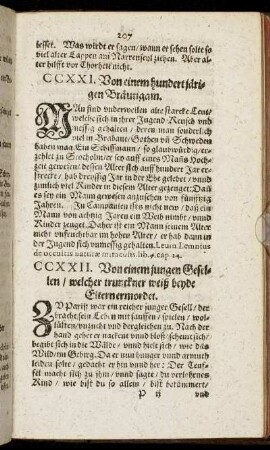 207
besset. Was würd er sagen / wann er sehen solte so
viel alter Lappen am Narrenseil ziehen. Aber al-
ter hilfft vor Thorheit nicht.
CCXXI. Von einem hundert järi-
gen Bräutigam.
MAn sind underweilen alte starcke Leut /
welche sich in ihrer Jugend Keusch und
messig gehalten / deren man sonderlich
viel in Brabant / Gothen uñ Schweden
haben man. Ein Schiffmann / so glaubwürdig / er-
zehlet zu Stocholm / er sey auff eines Mañs Hoch-
zeit gewesen / dessen Alter sich auff hundert Jar er-
streckt / hab dreissig Jar in der Ehe gelebet / vnnd
zimlich viel Kinder in diesem Alter gezeuget: Daß
es sey ein Mann gewesen anzusehen von fünffzig
Jahren. In Campinien ists nicht new / daß ein
Mann von achtzig Jaren ein Weib nimbt / vnnd
Kinder zeuget. Daher ist ein Mann seinem Alter
nicht vnfruchtbar im hohen Alter / er hab dann in
der Jugend sich vnmessig gehalten. Levin. Lemnius
de occultis naturæ miraculis lib. 4. cap. 24.
CCXXII. Von einem jungen Gesel-
len / welcher trunckner weiß beyde
Eltern ermordet.
ZU Pariß war ein reicher junger Gesell / der
bracht sein Leben mit sauffen / spielen / wol-
lüsten / vnzucht vnd dergleichen zu. Nach der
hand geher er nackent vnnd bloß / schemt sich /
begibt sich in die Wälde / vnnd hielt sich / wie das
Wild / im Gebirg. Da er nun hunger vnnd armuth
leiden solte / gedacht er hin vnnd her: Der Teuf-
fel macht sich zu ihm / vnnd sagte / du verlohrnes
Kind / wie bist du so allein / bist bekümmert /
P ij und